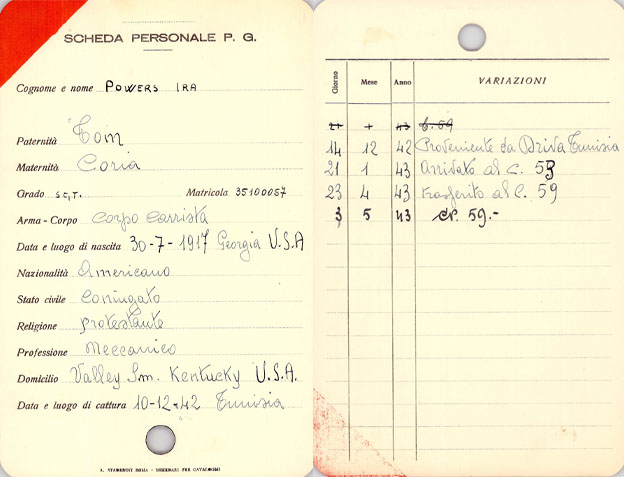 SCHEDA PERSONALE P. G.
Cognome e nome POWERS IRA
Paternità Tom
Maternità Coria
Grado SGT. Matricola 35100057
Arma - Corpo Corpo Carrista
Data e luogo di nascita 30-7-1917 Georgia U.S.A
Nazionalità Americano
Stato civile Coniugato
Religione protestante
Professione Meccanico
Domicilio Valley Sm. Kentucky U.S.A.
Data e luogo di cattura 10-12-42 Tunisia
Giorno Mese Anno VARIAZIONI
43 C. 59
14 12 42 Proveniente da Driva Tunisia
21 1 43 Arrivato al C. 59
23 4 43 trasferito al C. 59
3 5 43 59.-